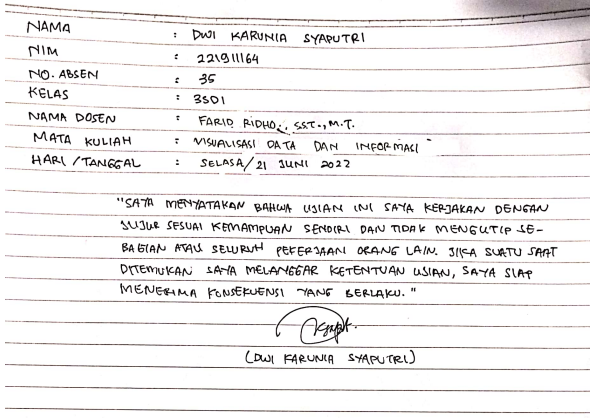 NAMA : DWI KARUNIA SYAPUTRI
NIM : 221911164
NO. ABSEN : 35
KELAS : 3SD1
NAMA DOSEN : FARID RIDHO., SST., M.T.
MATA KULIAH : VISUALISASI DATA DAN INFORMASI
HARI / TANGGAL : SELASA/ 21 JUNI 2022
"SAYA MENYATAKAN BAHWA UJIAN INI SAYA KERJAKAN DENGAN
JUJUR SESUAI KEMAMPUAN SENDIRI DAN TIDAK MENGUTIP SE-
BAGIAN ATAU SELURUH PEKERJAAN ORANG LAIN. JIKA SUATU SAAT
DITEMUKAN SAYA MELANGGAR KETENTUAN UJIAN, SAYA SIAP
MENERIMA KONSEKUENSI YANG BERLAKU."
(DWI KARUNIA SYAPUTRI)